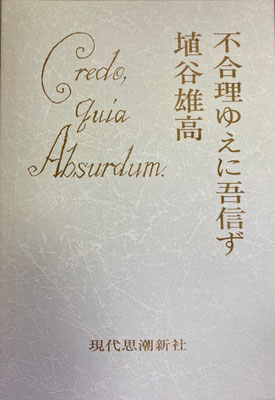 不合理ゆえに吾信ず
埴谷雄高
Credo,
quia
Absurdum.
現代思潮新社